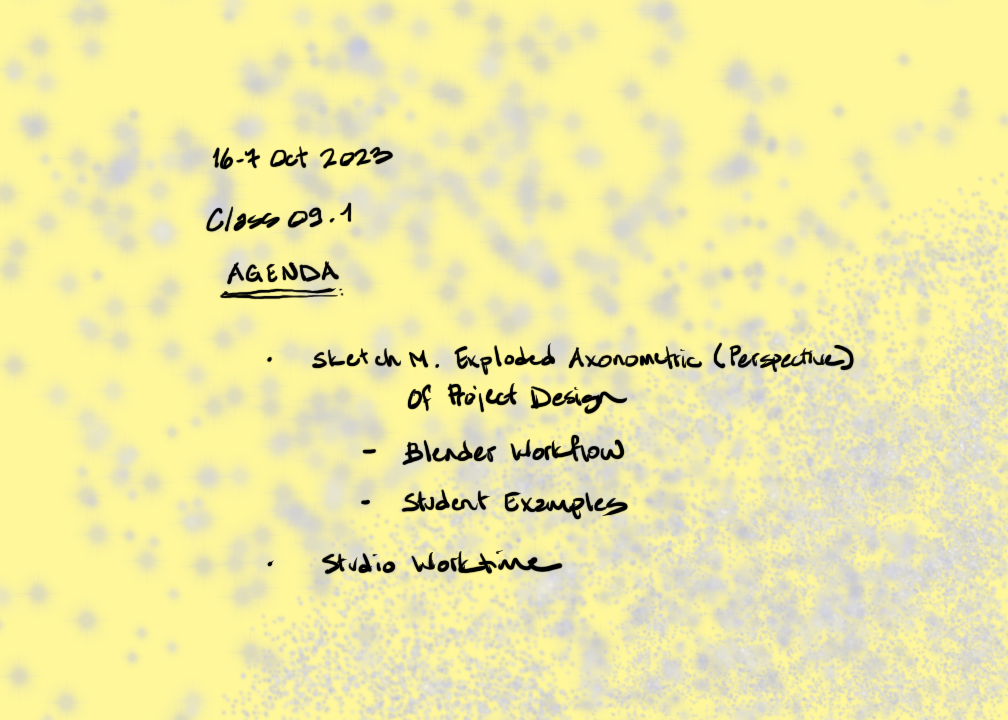 16-7 Oct 2023
Class 09.1
AGENDA
· Sketch M. Exploded Axonometric (Perspective)
Of Project Design
- Blender Workflow
- Student Examples
· Studio Worktime